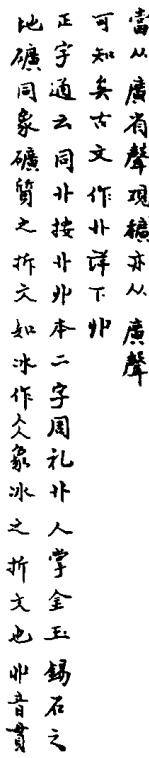 當从廣省聲觀穬亦从廣聲
可知矣古文作卝詳下丱
正字通云同卝按卝丱本二字周礼卝人掌金玉錫石之
地礦同象礦質之折文如冰作仌象冰之折文也丱音貫